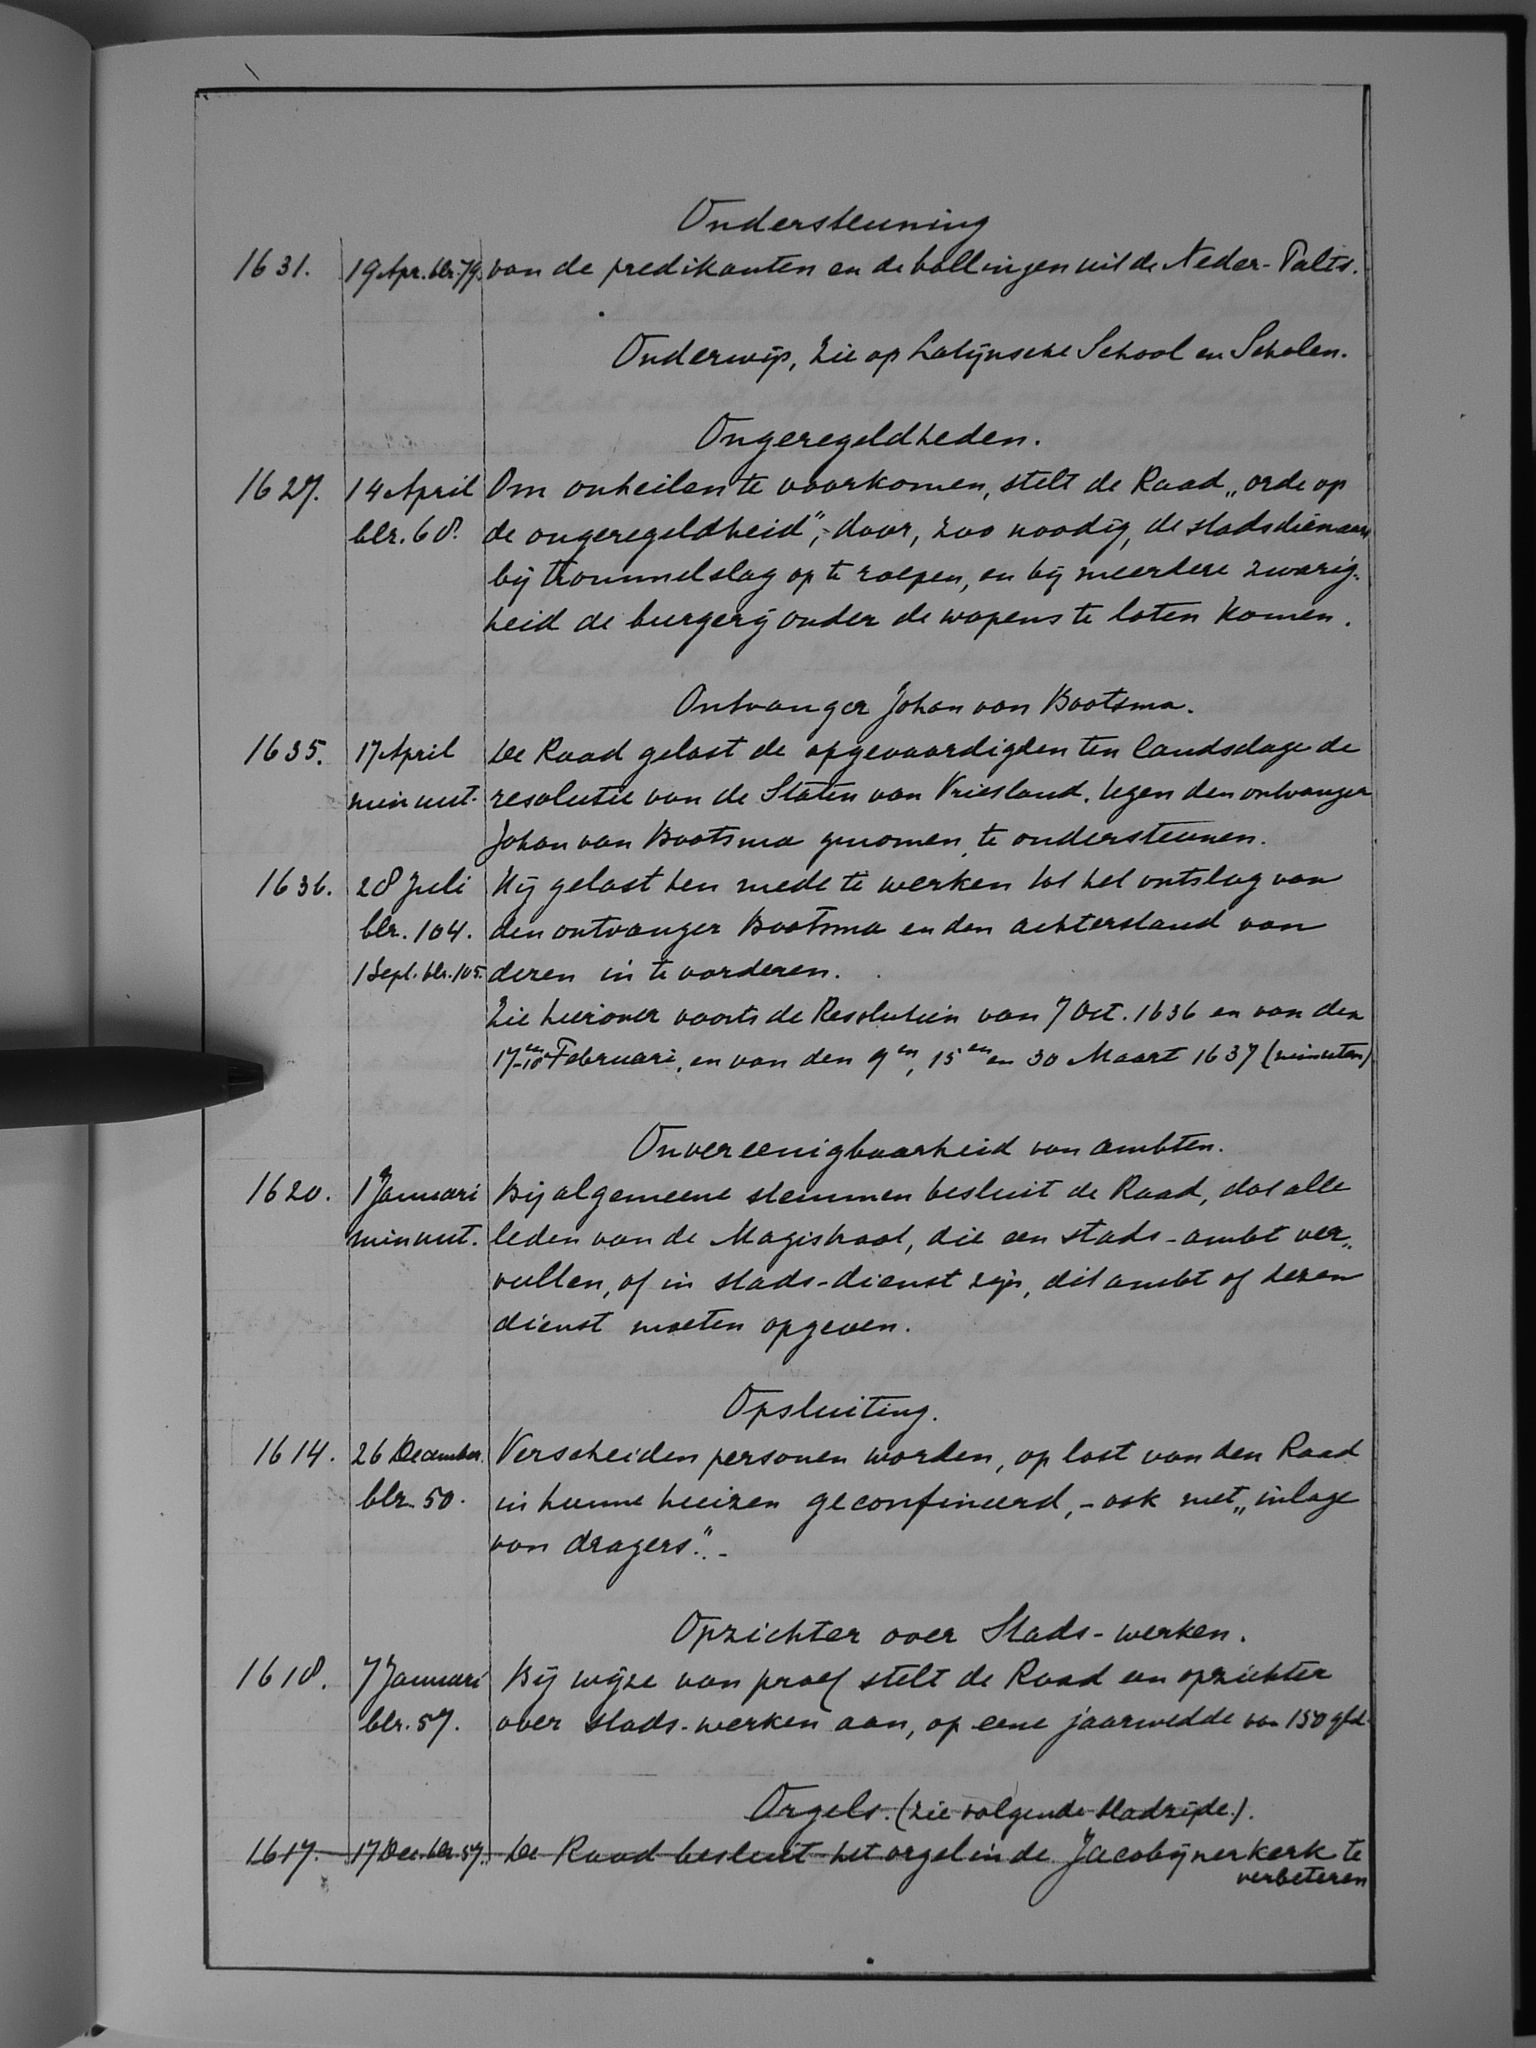 Ondersteuning
1631. 19 Apr. blr. 79. van de predikanten en de ballingen uit de Neder-Palts.
Onderwijs, zie op Latijnsche School en Scholen.
Ongeregeldheden.
1627. 14 April Om onheilen te voorkomen, stelt de Raad „orde op
blr. 68. de ongeregeldheid”, door, zoo noodig, de stadsdienaars
bij trommelslag op te roepen, en bij meerdere zwarig-
heid de burgerij onder de wapens te laten komen.
Ontvanger Johan van Bootsma.
1635. 17 April De Raad gelast de afgevaardigden ten landsdage de
minuut. resolutie van de Staten van Vriesland, tegen den ontvanger
Johan van Bootsma genomen, te ondersteunen.
1636. 28 Juli Hij gelast hen mede te werken tot het ontslag van
blr. 104. den ontvanger Bootsma en den achterstand van
1 Sept. blr. 105. dezen in te vorderen.
Zie hierover voorts de Resolutien van 7 Oct. 1636 en van den
17-18en Februari, en van den 9en, 15en en 30 Maart 1637 (minuten)
Onvereenigbaarheid van ambten.
1620. 1 Januari Bij algemeene stemmen besluit de Raad, dat alle
minuut. leden van de Magistraat, die een stads-ambt ver„
vullen, of in stads-dienst zijn, dit ambt of dezen
dienst moeten opgeven.
Opsluiting.
1614. 26 December. Verscheiden personen worden, op last van den Raad
blr. 50. in hunne huizen geconfineerd, - ook met „inlage
van dragers”. -
Opzichter over Stads-werken.
1618. 7 Januari Bij wijze van proef stelt de Raad een opzichter
blr. 57. over stads-werken aan, op eene jaarwedde van 150 gld.
Orgels. (zie volgende bladzijde.).
1617. 17 Dec. blr. 57. De Raad besluit het orgel in de Jacobijnerkerk te
verbeteren